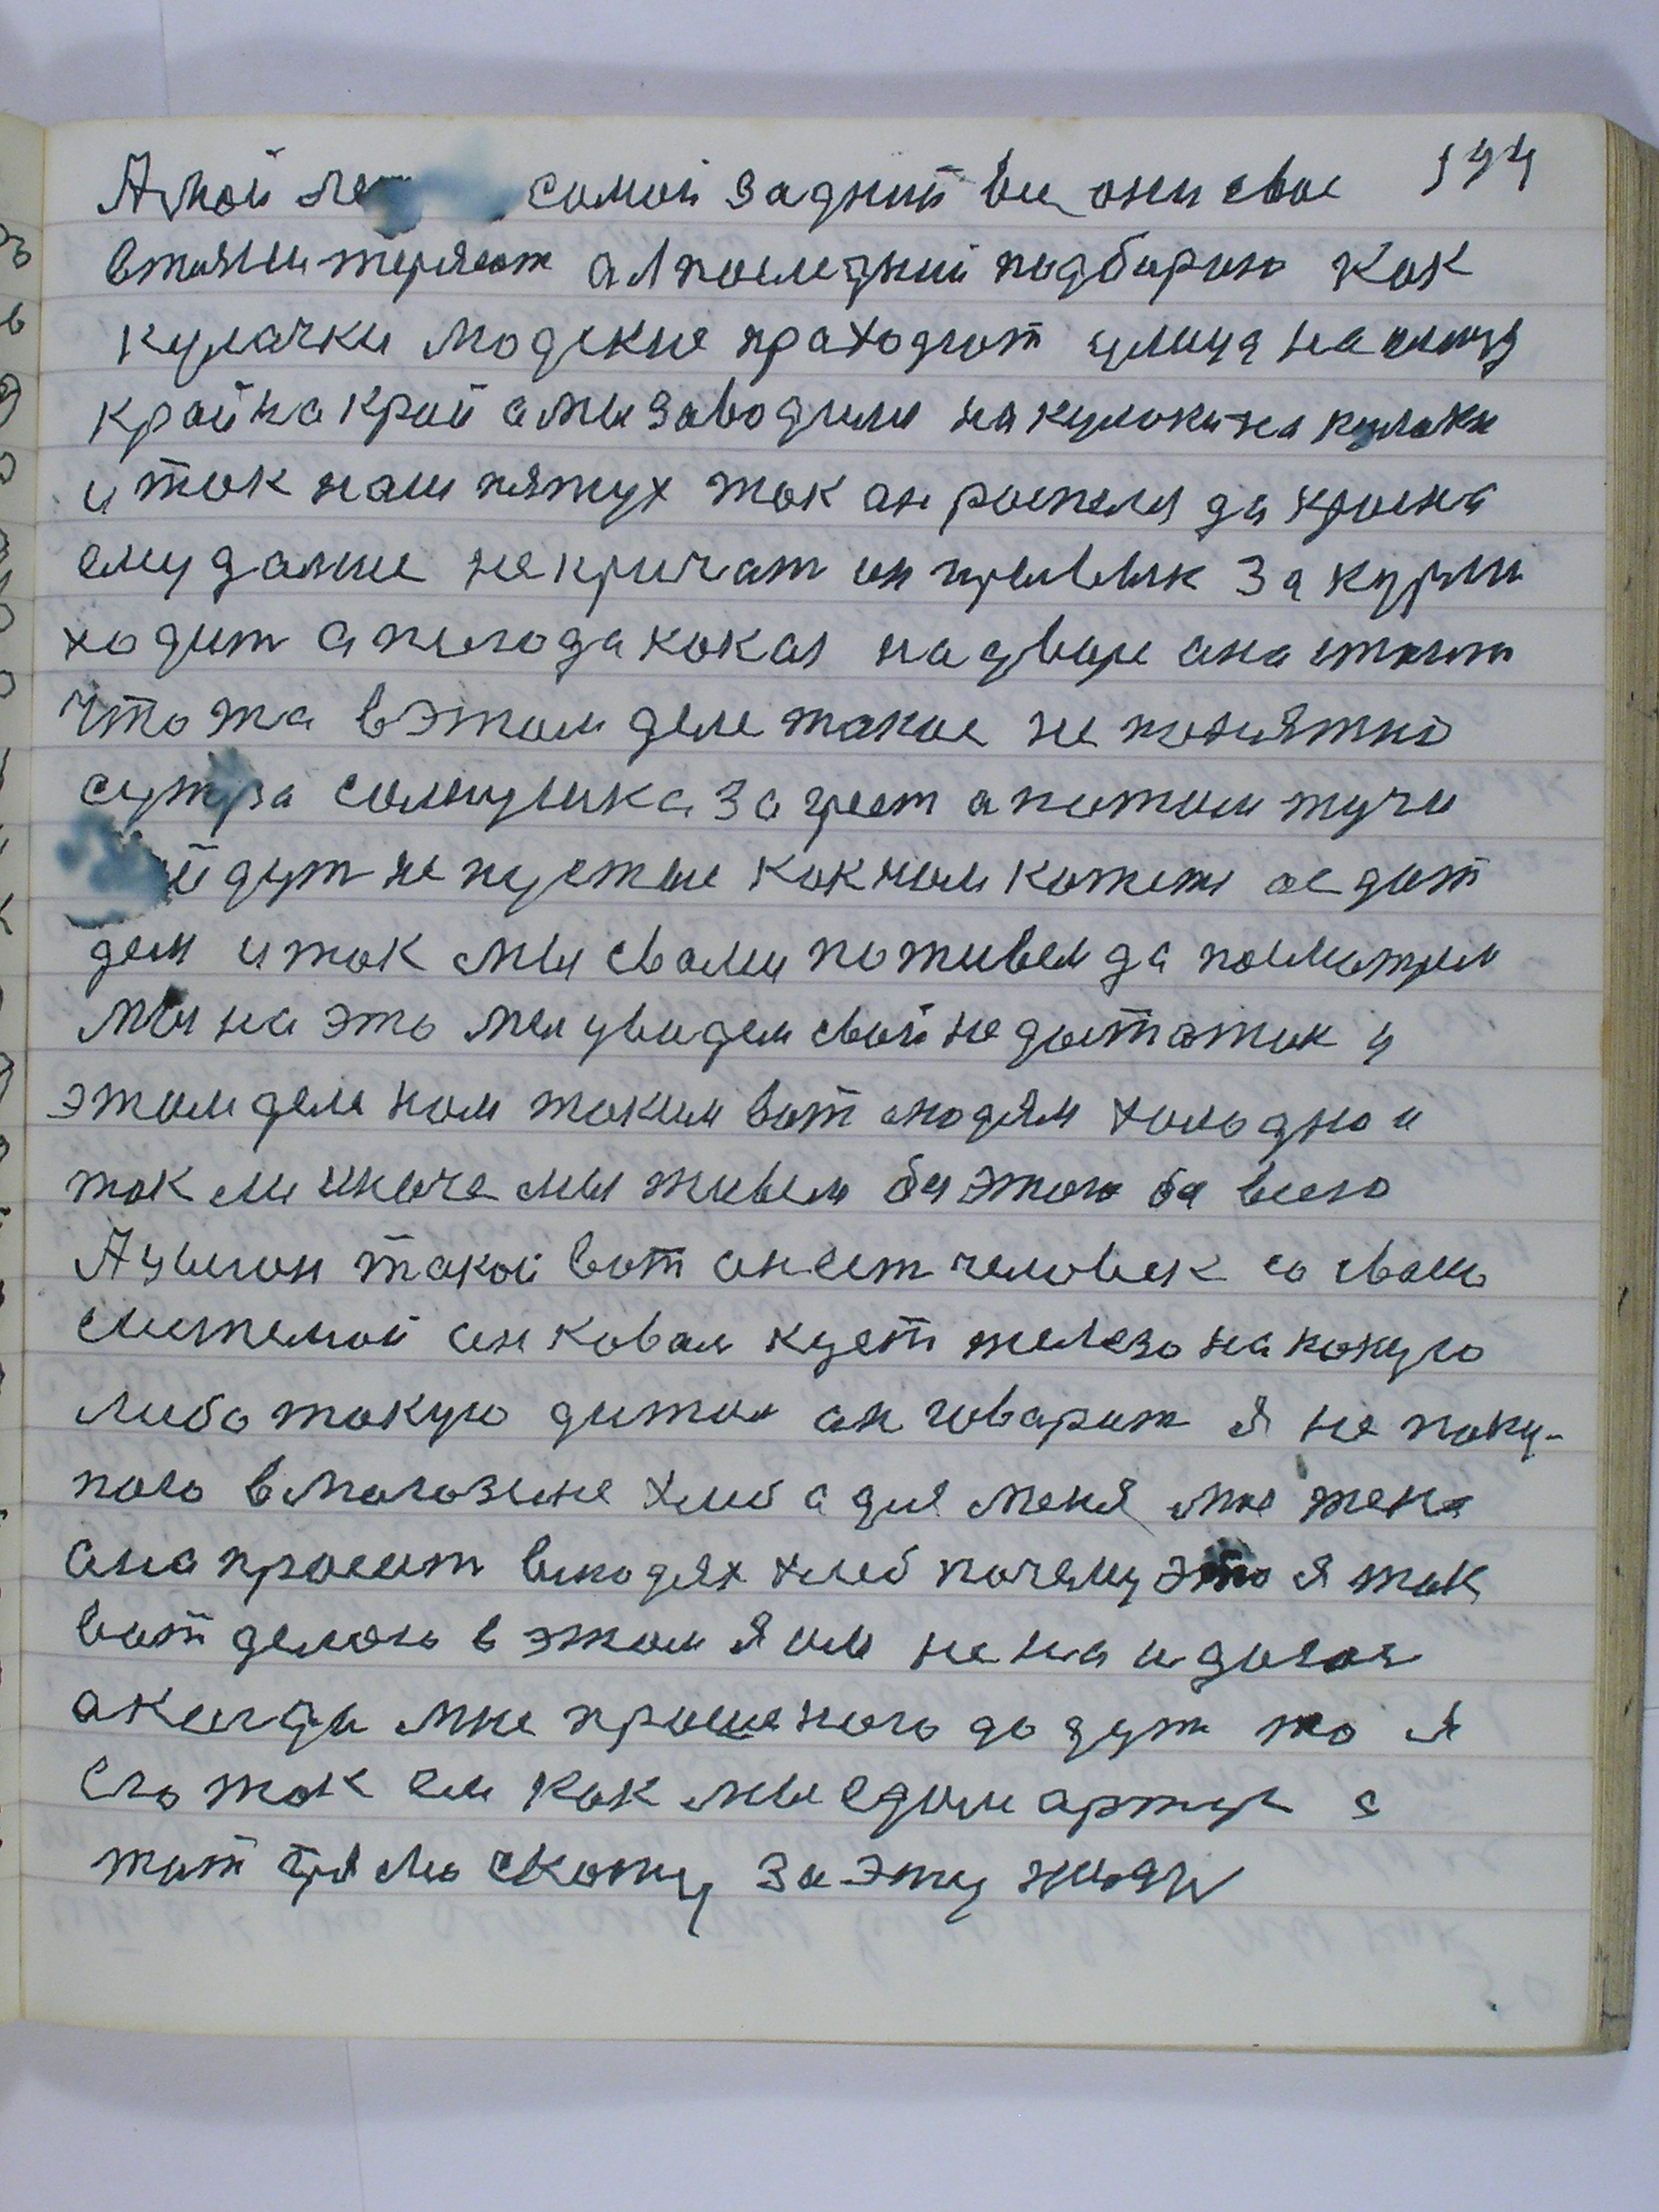 А мой самой задний все они свое
втянши теряют а я последний подбираю как
кулачки людские праходют улица на улицу
край на край а мы заводили на кулоки на кулаки
и так наш пятух так он роспелся да
ему дамше не кричат он привык за курми
ходит а погода какая на дворе она стоит
что жа в этом деле такое не понятно
сутра солнушка загреет а потом тучи
йдут не пустые как нам кажется
дем и так мы свами поживем да посмотрем
мы на это мы увидем свой недостаток у
этом деле нам таким вот людям холодно и
так ли иначе мы живем бя этого бя всего
А цыган такой вот он ест человек со своею
системой он ковал кует железо на какую
либо такую детал он говарит я не поку-
паю в могозине хлеб а для меня мае жена
она просит влюдях хлеб почему это я так
вот делаю в этом я им не на
а когда мне прошенаго дадут то я
его так ем как мы едим а
тот прямо скажу за эту